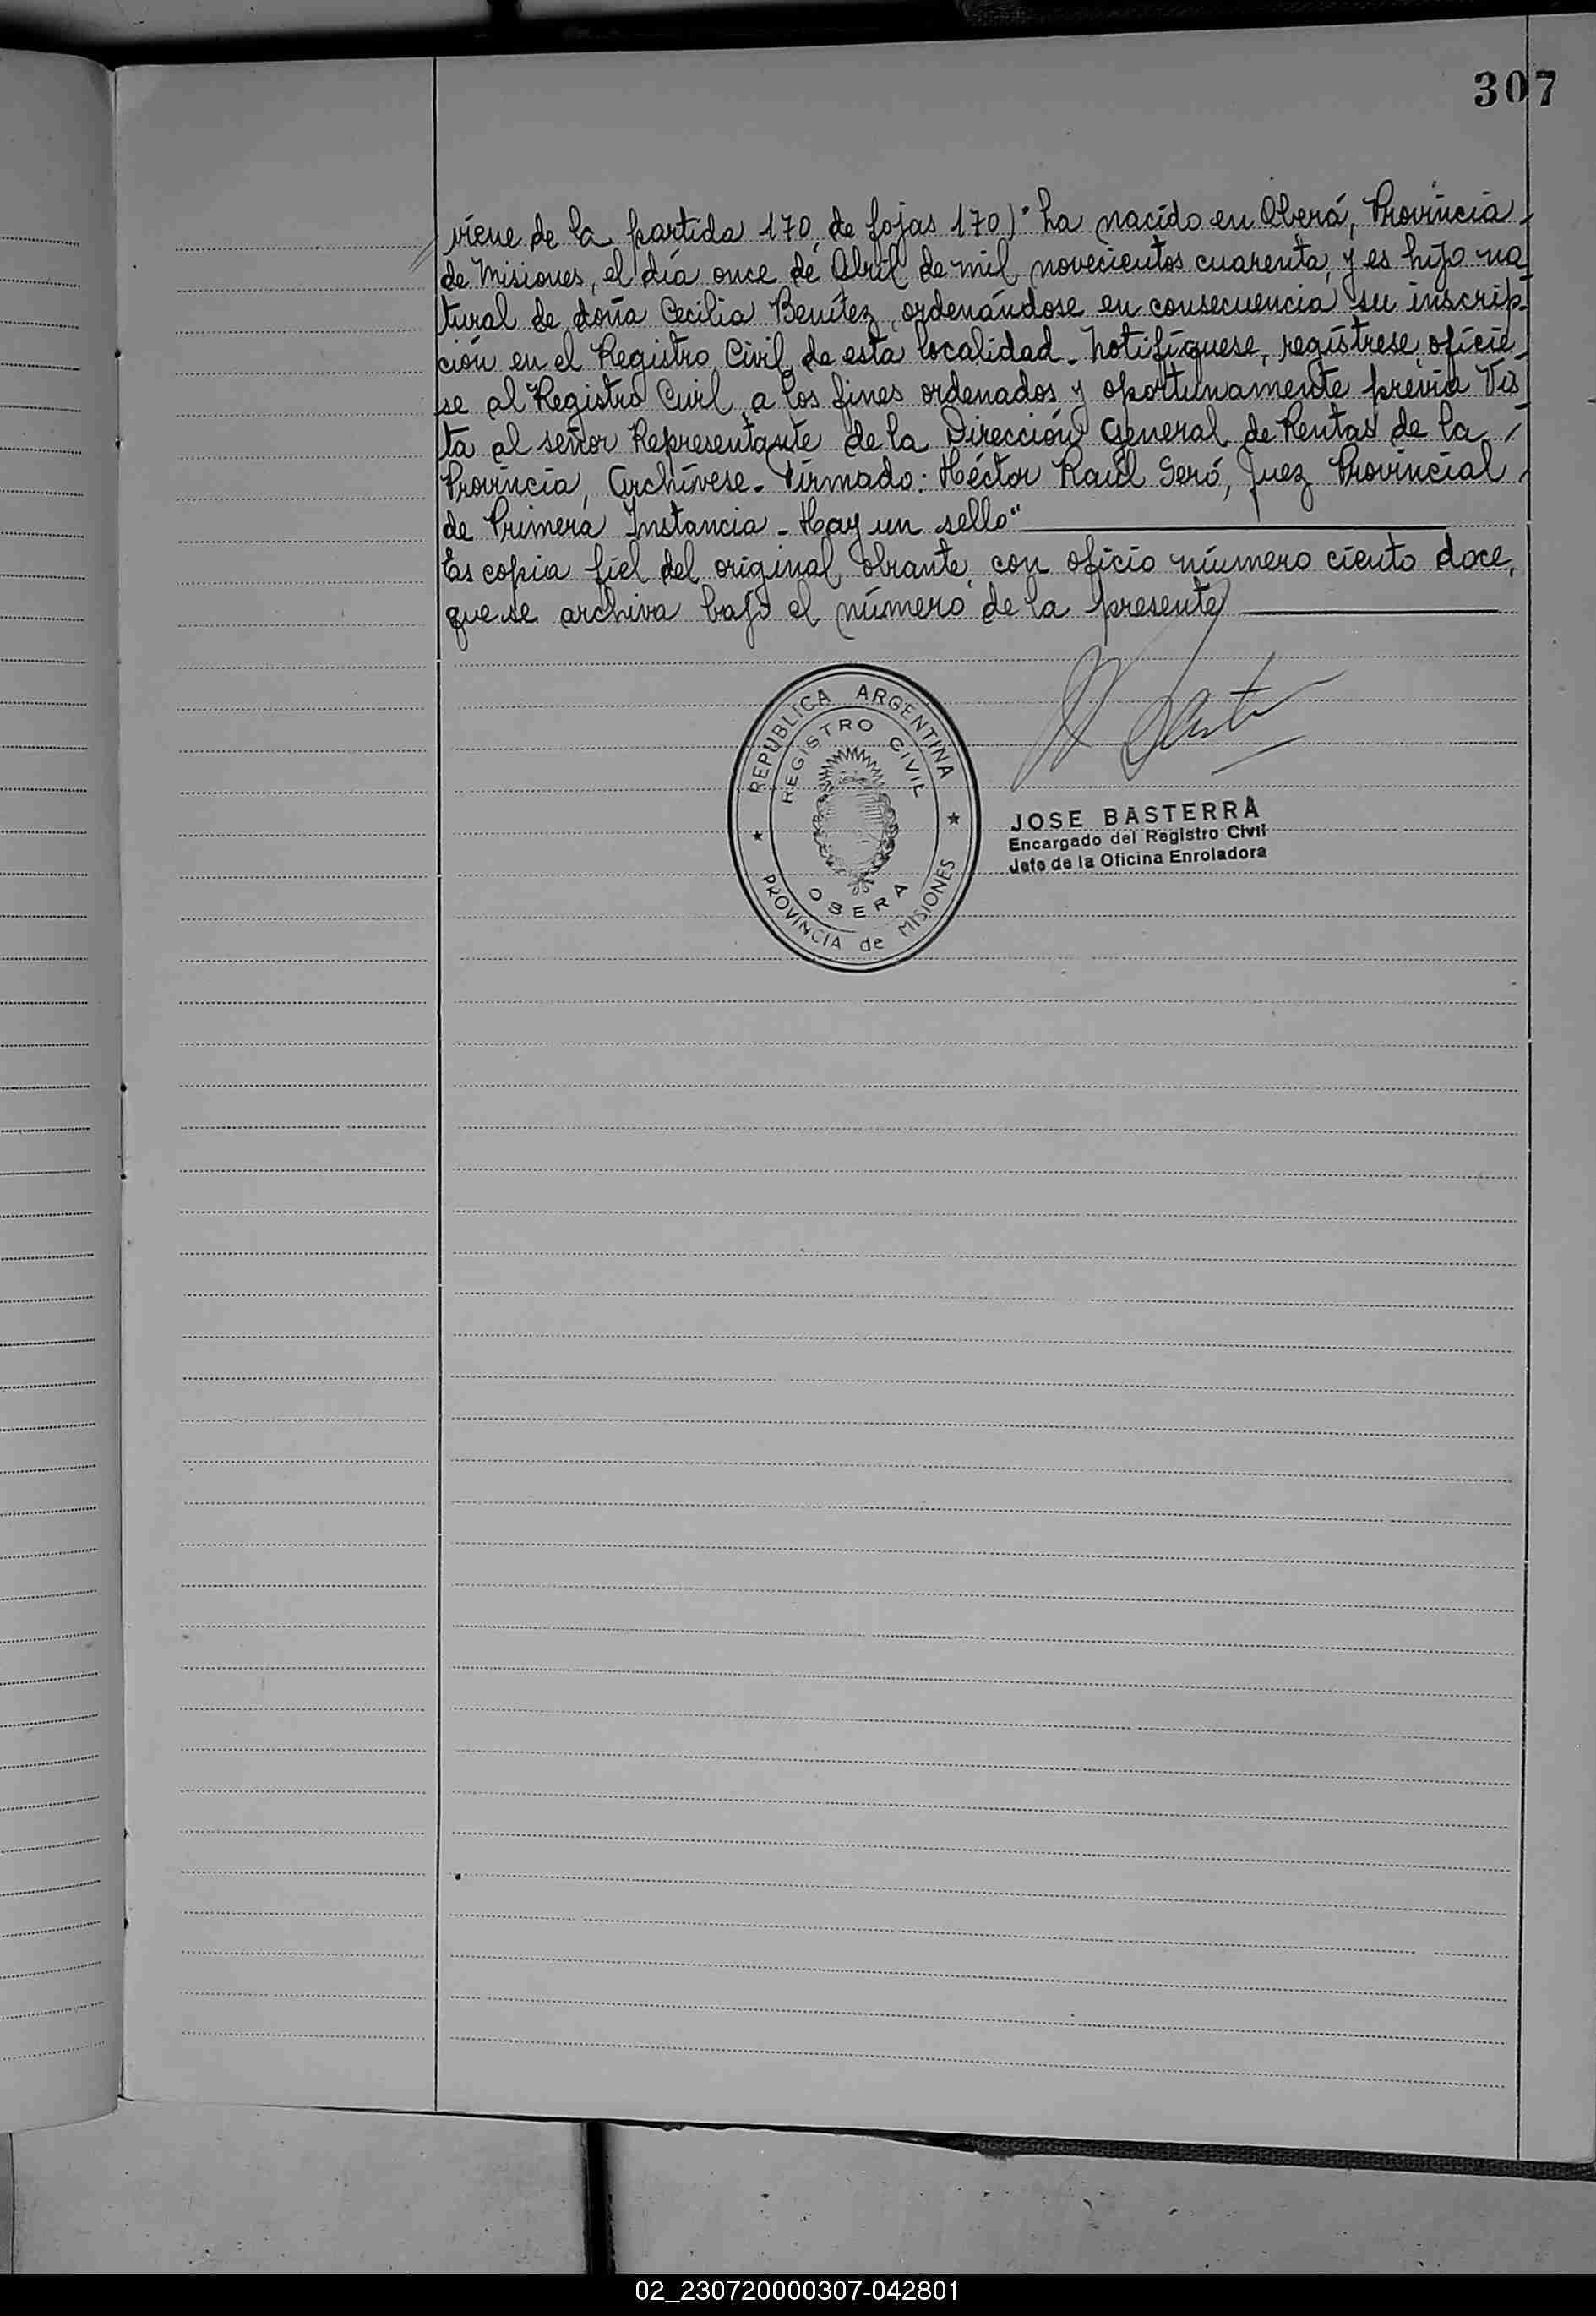 307
viene de la partida 170, de fojas 170)" ha nacido en Oberá, Provincia
de Misiones, el día once de Abril de mil novecientos cuarenta y es hijo na
tural de doña Cecilia Benítez, ordenándose en consecuencia su inscrip-
ción en el Registro Civil de esta localidad_ Notifíquese, regístrese, oficie_
se al Registro Civil a los fines ordenados y oportunamente previa Vis
ta al señor Representante de la Dirección General de Rentas de la
Provincia, Archívese_ Firmado: Héctor Raúl Seró, Juez Provincial
de Primera Instancia_ Hay un sello"
Es copia fiel del original obrante con oficio número ciento doce,
que se archiva bajo el número de la presente
REPUBLICA ARGENTINA
REGISTRO CIVIL
OBERA
PROVINCIA de MISIONES
JOSE BASTERRA
Encargado del Registro Civil
Jefe de la Oficina Enroladora
02_230720000307-042801